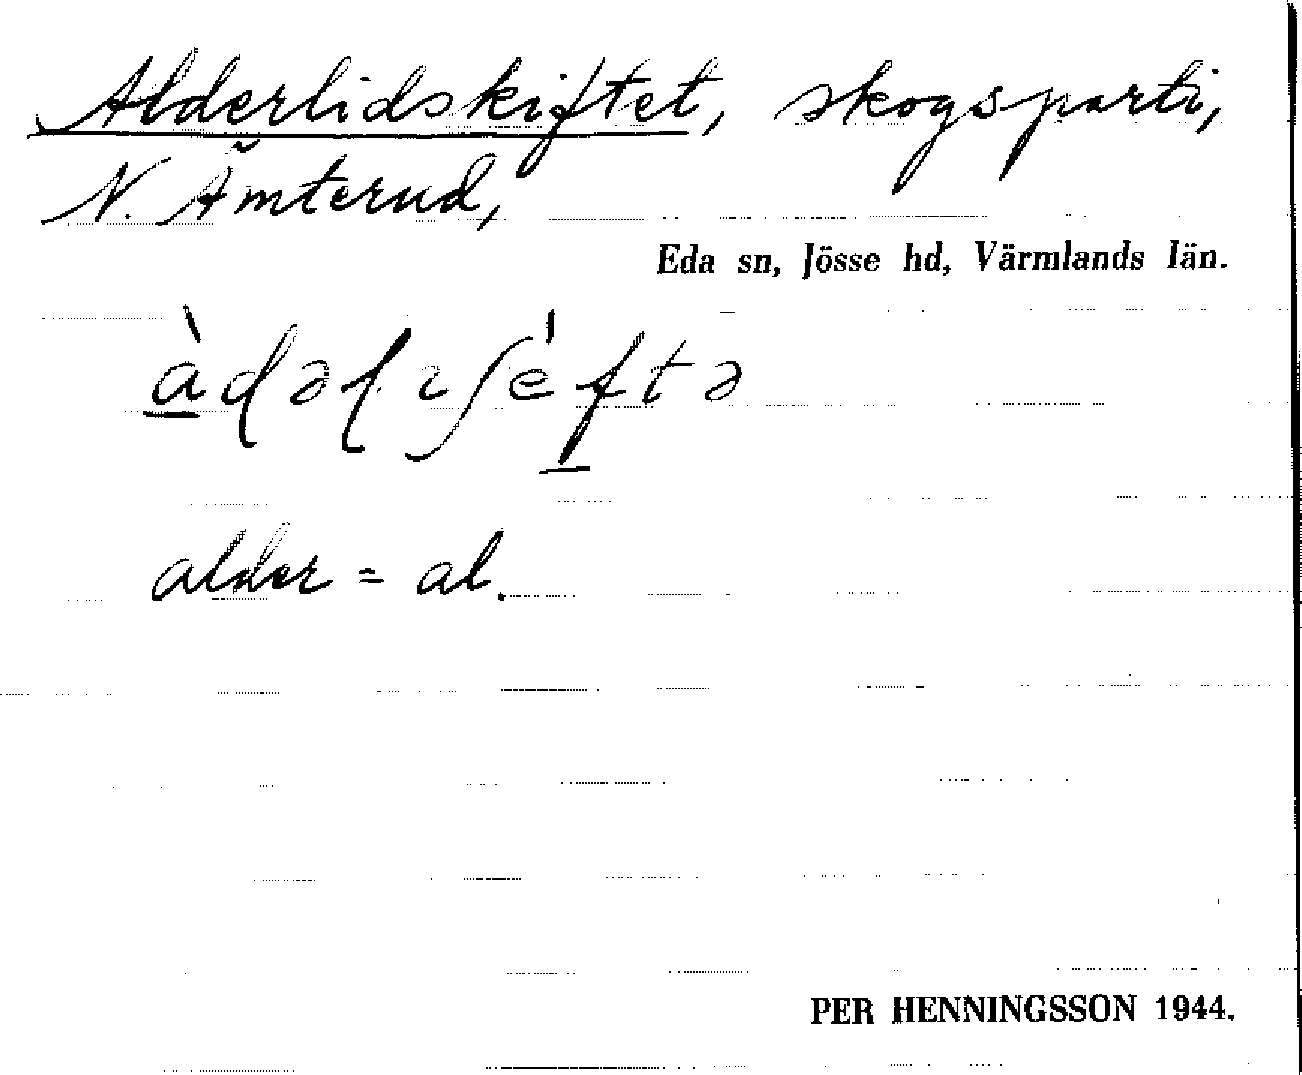 Alderlidskiftet, skogsparti,
N. Åmterud,
Eda sn, Jösse hd, Värmlands län.
alder = al.
PER HENNINGSSON 1944.